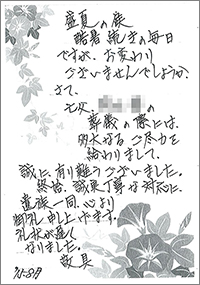 盛夏の候
酷暑続きの毎日
ですが、お変わり
ございませんでしょうか。
さて、
亡父、の
葬儀の際には、
多大なるご尽力を
賜わりまして、
誠に、有り難うございました。
終始、誠実丁寧な対応に、
遺族一同、心より
御礼申し上げます。
礼状が遅く
なりました。
敬具